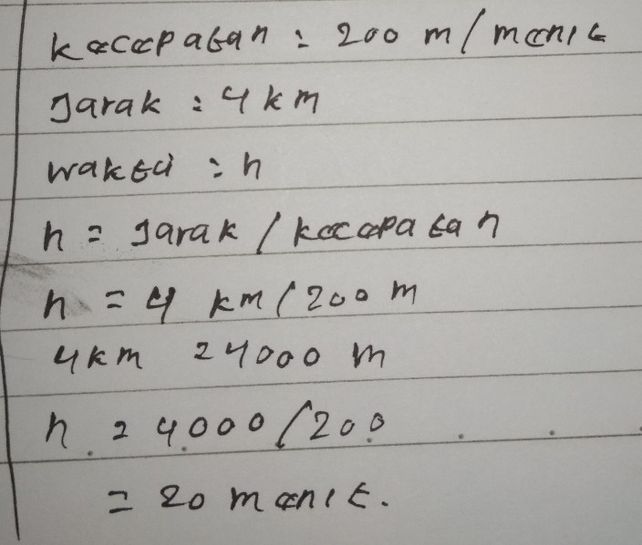 kecepatan : 200 m/menit
Jarak : 4 km
waktu : n
n = Jarak / kecepatan
n = 4 km / 200 m
4 km = 4000 m
n = 4000 / 200
= 20 menit.